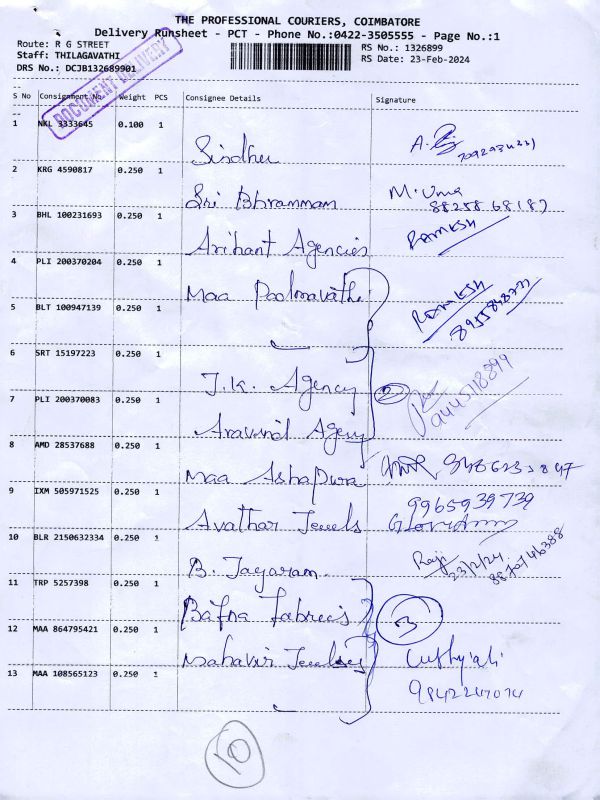 THE PROFESSIONAL COURIERS, COIMBATORE
Delivery Runsheet - PCT - Phone No.:0422-3505555 - Page No.:1
Route: R G STREET
RS No.: 1326899
Staff: THILAGAVATHI
RS Date: 23-Feb-2024
DRS No.: DCJB132689901
DOCUMENT DELIVERY
S No Consignment No. Weight PCS Consignee Details Signature
1 NKL 3333645 0.100 1
Sindhu A.
2 KRG 4590817 0.250 1
Sri Bhrammam M. Uma
88258 68187
3 BHL 100231693 0.250 1
Arihant Agencies Ramesh
4 PLI 200370204 0.250 1
Maa Padmavathi Ramesh
5 BLT 100947139 0.250 1
6 SRT 15197223 0.250 1
J.K. Agency 2 9445118899
7 PLI 200370083 0.250 1
Aravind Agency
8 AMD 28537688 0.250 1
Maa Ashapura
9 IXM 505971525 0.250 1
9965939739
Avathar Jewels
10 BLR 2150632334 0.250 1
B. Jayaram Raji 23/2/24
11 TRP 5257398 0.250 1
Bafna Fabrecis 3
12 MAA 864795421 0.250 1
Mahavir Jewellers
13 MAA 108565123 0.250 1
10